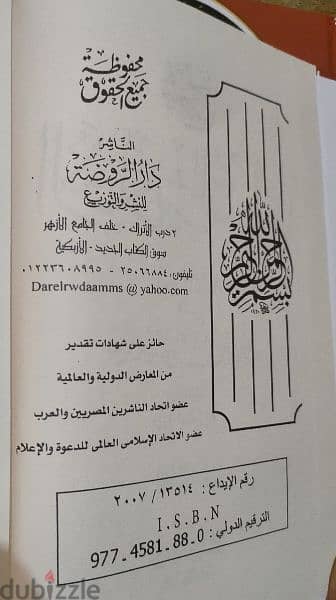 محفوظة
جميع الحقوق
بسم الله الرحمن الرحيم
الناشر
دار الروضة
للنشر والتوزيع
٢ درب الأتراك - خلف الجامع الأزهر
سوق الكتاب الجديد - الأزبكية
تليفون: ٢٥٠٦٦٨٨٤ - ٠١٢٢٣٦٠٨٩٩٥
Darelrwdaamms @ yahoo.com
حائز على شهادات تقدير
من المعارض الدولية والعالمية
عضو اتحاد الناشرين المصريين والعرب
عضو الاتحاد الإسلامى العالمى للدعوة والإعلام
رقم الإيداع : ١٣٥١٤ / ٢٠٠٧
I.S.B.N
الترقيم الدولي : 0 - 88 - 4581 - 977
dubizzle